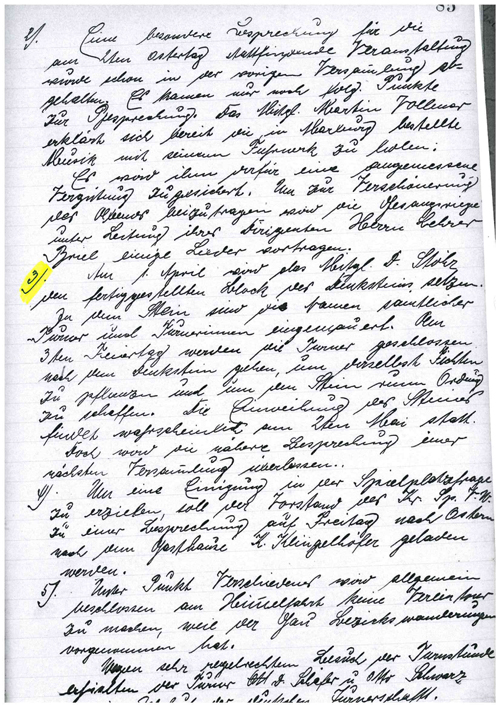 83
2). Eine besondere Besprechung für die
am 2ten Ostertag stattfindende Veranstaltung
wurde schon in der vorigen Versammlung ab-
gehalten. Es kamen nur noch folg. Punkte
zur Besprechung. Das Mitgl. Martin Vollmar
erklärt sich bereit die in Marburg bestellte
Musik mit seinem Fuhrwerk zu holen.
Es wird ihm dafür eine angemessene
Vergütung zugesichert. Um zur Verschönerung
des Abends beizutragen wird die Gesangsriege
unter Leitung ihres Dirigenten Herrn Lehrer
Briel einige Lieder vortragen.
3). Am 1. April wird das Mitgl. D.
den fertiggestellten Block des Denksteins setzen.
In dem Stein sind die Namen samtlicher
Turner und Turnerinnen eingemauert. Am
3ten Feiertag werden die Turner geschlossen
nach dem Denkstein gehen, um derselbst Fichten
zu pflanzen und um den Stein rum Ordnung
zu schaffen. Die Einweihung des Steines
findet wahrscheinlich am 2ten Mai statt.
Doch wird die nähere Besprechung einer
nächsten Versammlung überlassen.
4). Um eine Einigung in der Spielplatzfrage
zu erzielen, soll der Vorstand des Kr. Sp. V.
zu einer Besprechung auf Freitag nach Ostern
nach dem Gasthause K. Klingelhöfer geladen
werden.
5). Unter Punkt Verschiedenes wird allgemein
beschlossen am Himmelfahrt keine Vereinstour
zu machen, weil der Gau Bezirkswanderungen
vorgenommen hat.
Wegen sehr regelrechtem Besuch der Turnstunde
erhielten der Turner D. Schäfer u. Otto Schwarz
der deutschen Turnerschaft.